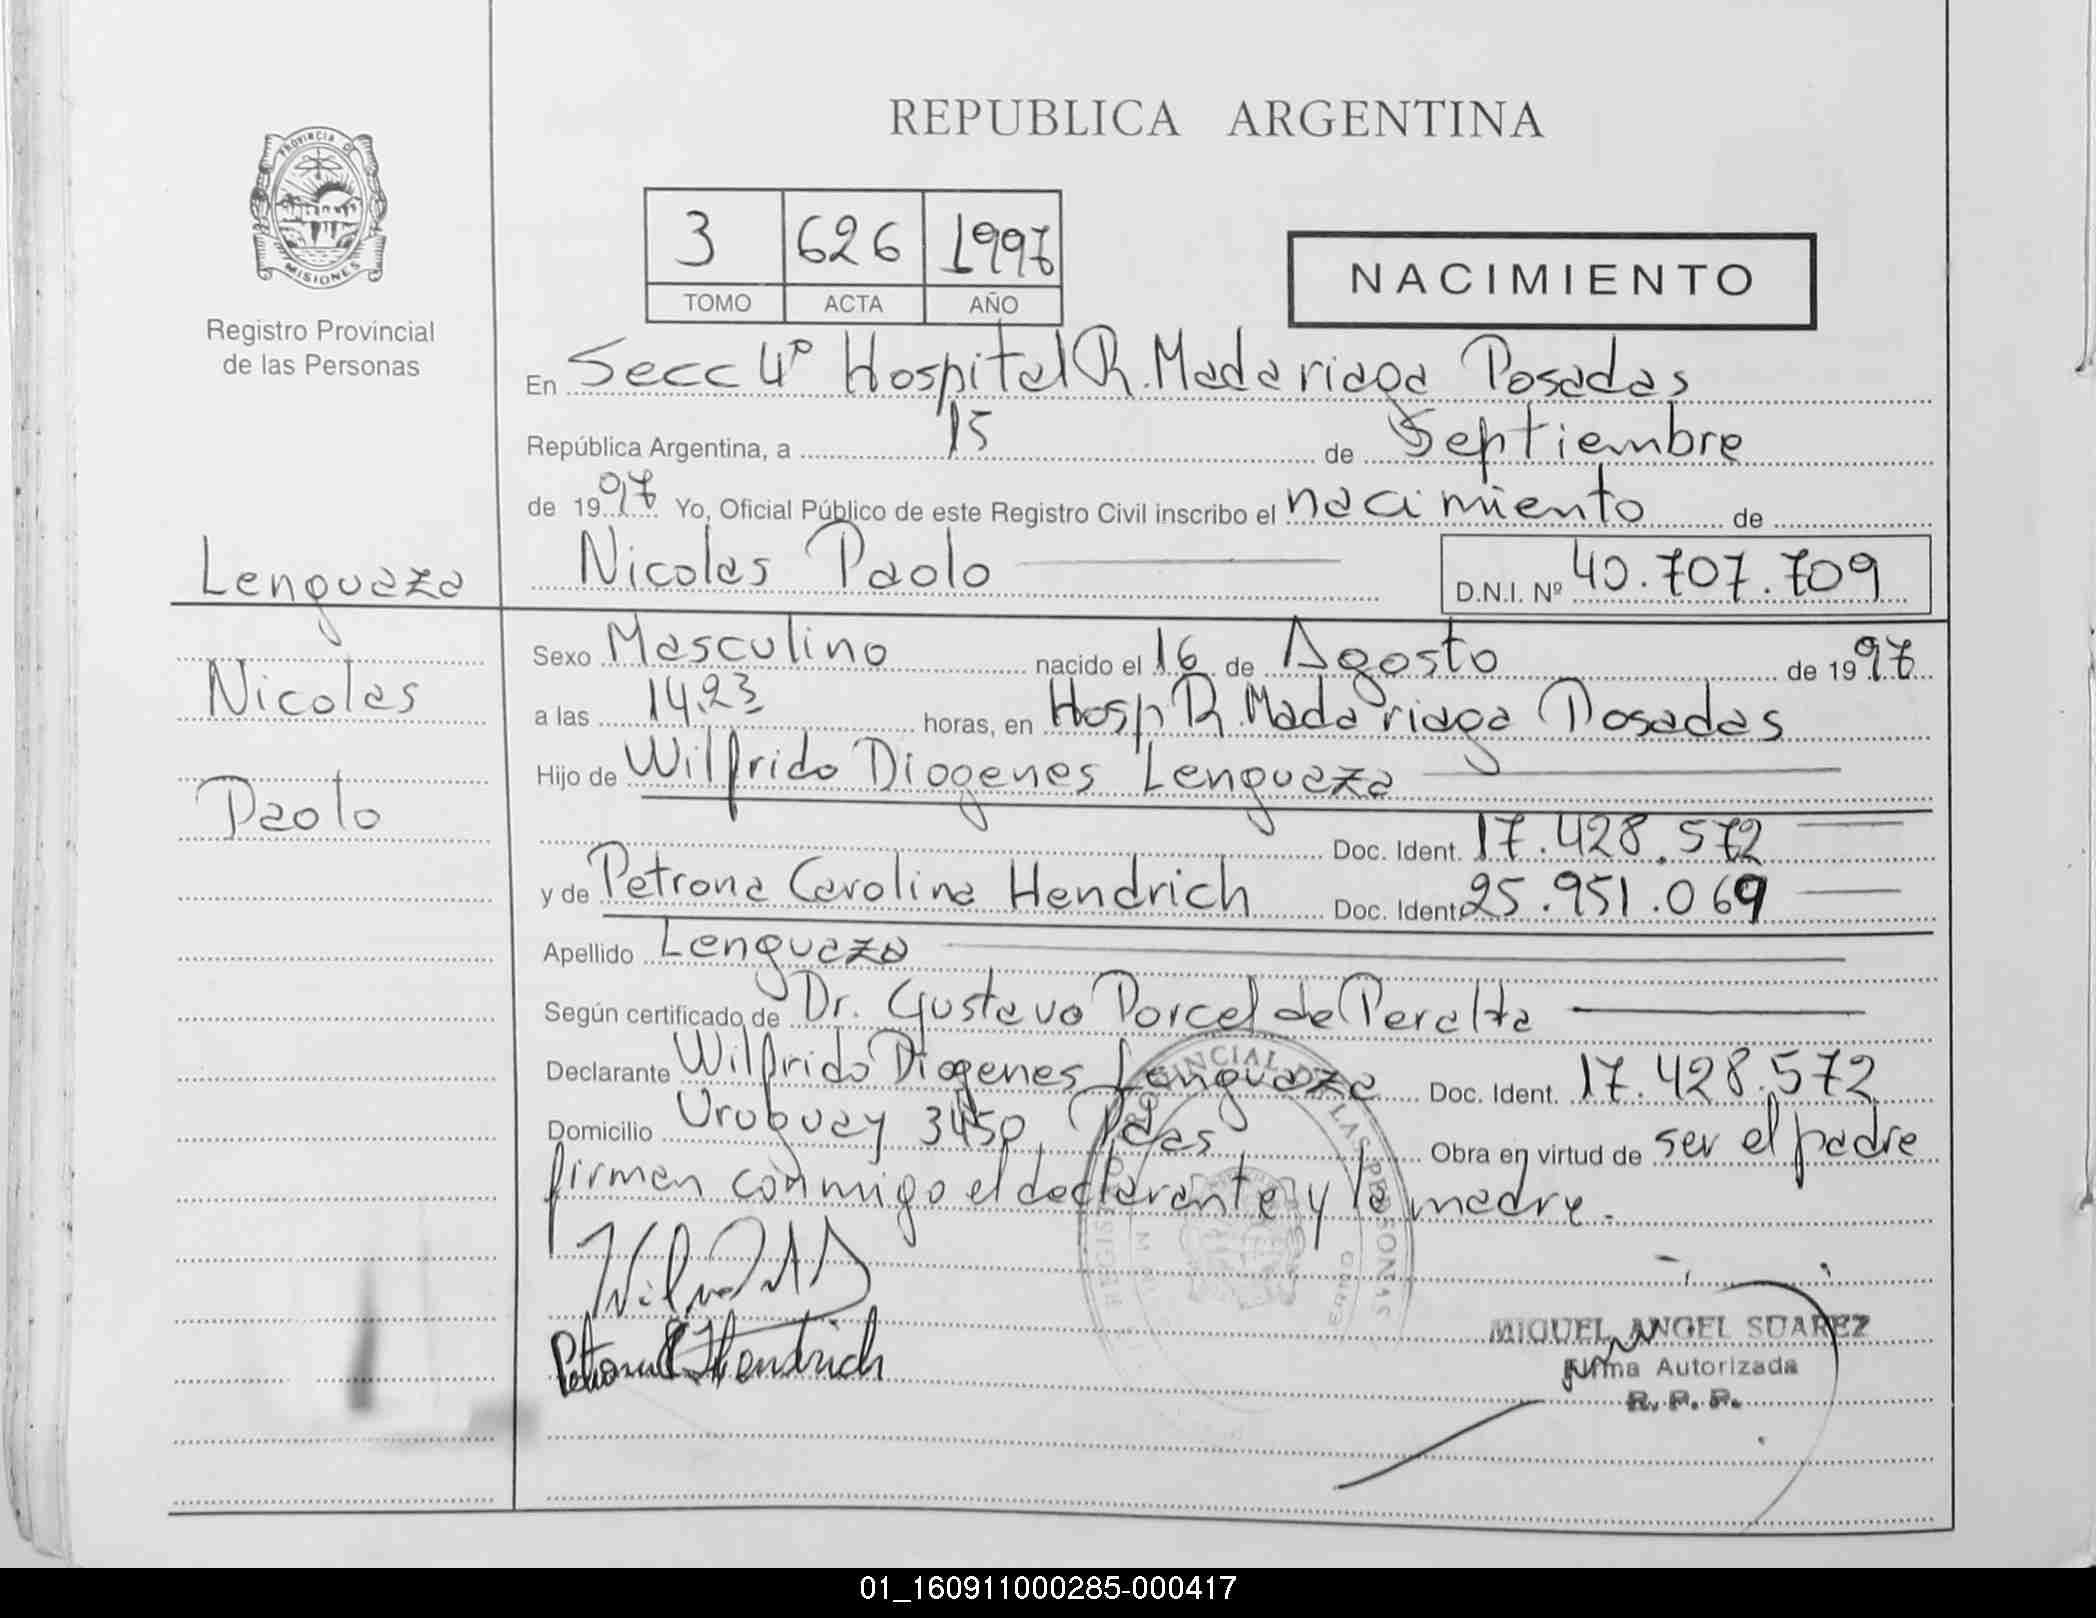 REPUBLICA ARGENTINA
PROVINCIA D
MISIONES
Registro Provincial
de las Personas
3 626 1997
TOMO ACTA AÑO
NACIMIENTO
En Secc 4º Hospital R. Madariaga Posadas
República Argentina, a 15 de Septiembre
de 1997 Yo, Oficial Público de este Registro Civil inscribo el nacimiento de
Nicolas Paolo D.N.I. Nº 40.707.709
Lenguaza
Nicolas
Paolo
Sexo Masculino nacido el 16 de Agosto de 1997
a las 14,23 horas, en Hosp R. Madariaga Posadas
Hijo de Wilfrido Diogenes Lenguaza
Doc. Ident. 17.428.572
y de Petrona Carolina Hendrich Doc. Ident. 25.951.069
Apellido Lenguaza
Según certificado de Dr. Gustavo Porcel de Peralta
Declarante Wilfrido Diogenes Lenguaza Doc. Ident. 17.428.572
Domicilio Uruguay 3450 Pdas Obra en virtud de ser el padre
firman conmigo el declarante y la madre.
Petrona C Hendrich
MIGUEL ANGEL SUAREZ
Firma Autorizada
R. P. P.
01_160911000285-000417